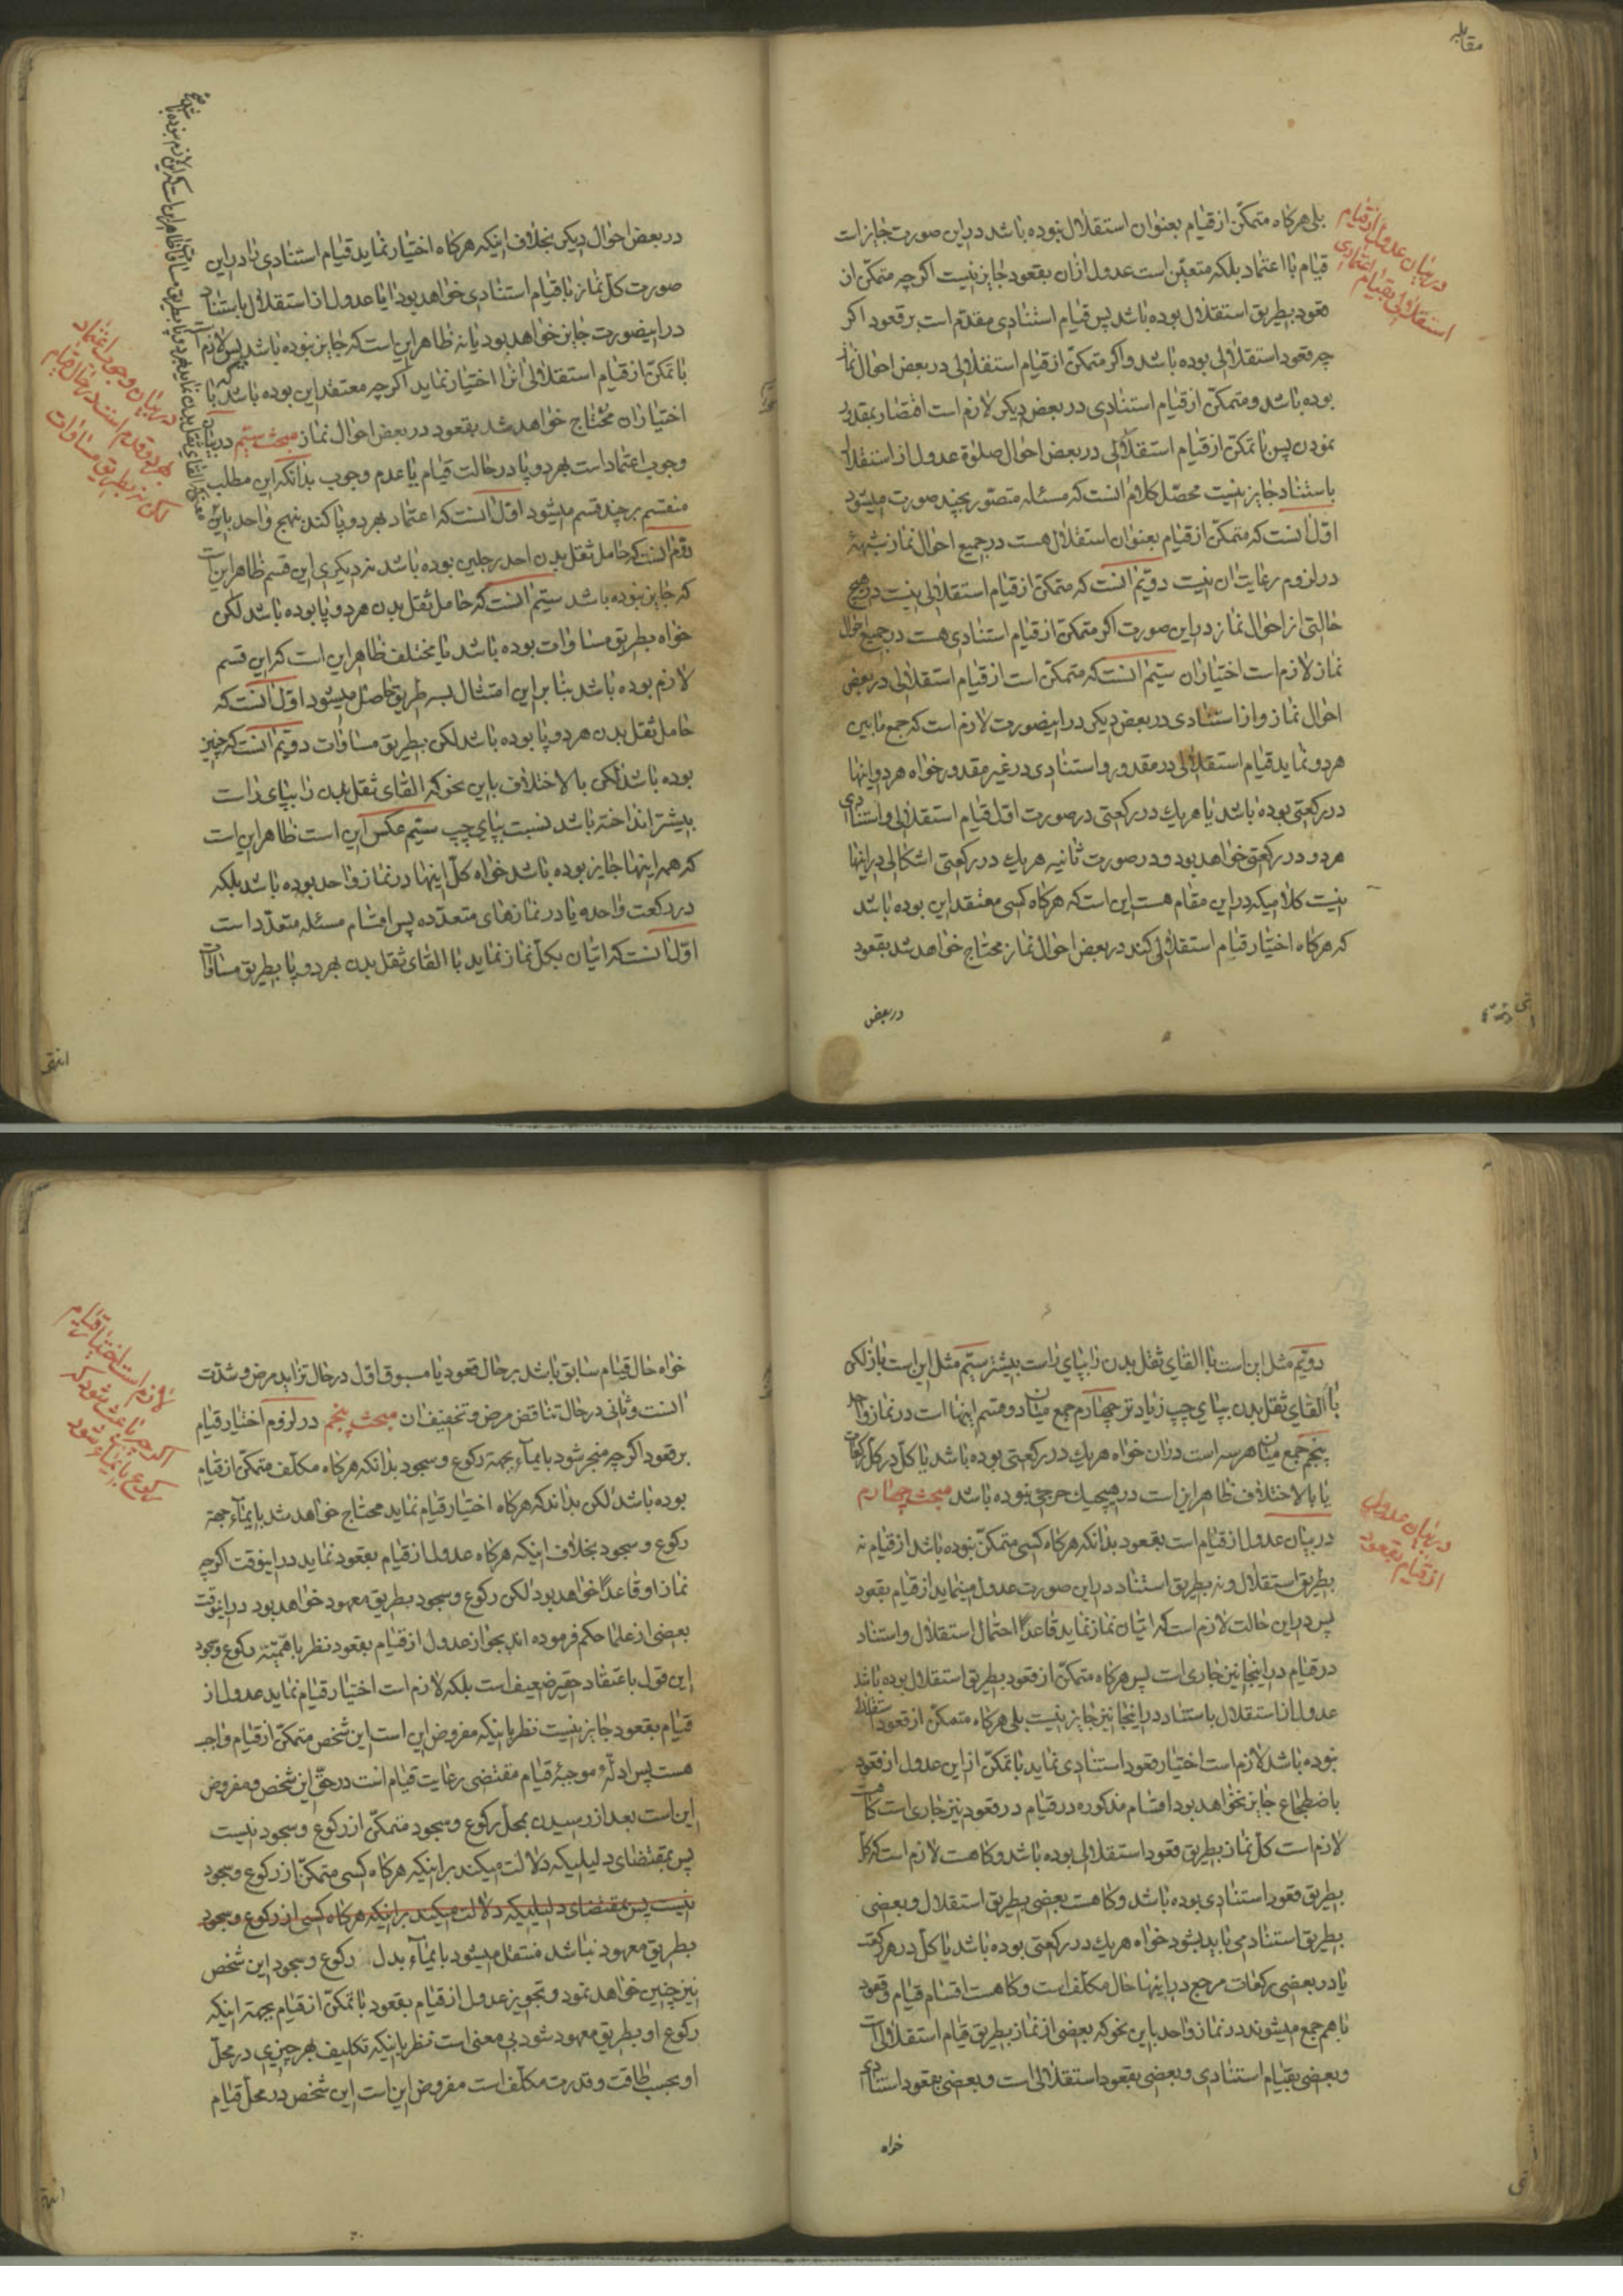 مقابله
بلی هرکاه متمکن از قیام بعنوان استقلال نبوده باشد در این صورت جایز است
قیام با اعتماد بلکه متعین است عدول از ان بقعود جایز نیست اکرچه متمکن از
قعود بطریق استقلال بوده باشد پس قیام استنادی مقدم است بر قعود اکر
چه قعود استقلالی بوده باشد و اکر متمکن از قیام استقلالی در بعض احوال نماز
بوده باشد و متمکن از قیام استنادی در بعض دیکر لازم است اقتصار بمقدور
نمودن پس با تمکن از قیام استقلالی در بعض احوال صلوة عدول از استقلال
باستناد جایز نیست محصل کلام انست که مسئله متصور بچند صورت میشود
اول انست که متمکن از قیام بعنوان استقلال هست در جمیع احوال نماز شبهۀ
در لزوم رعایت ان نیست دویم انست که متمکن از قیام استقلالی نیست در هیچ
حالتی از احوال نماز در این صورت اکر متمکن از قیام استنادی هست در جمیع احوال
نماز لازم است اختیار ان سیتم انست که متمکن است از قیام استقلالی در بعض
احوال نماز و از استنادی در بعض دیکر در اینصورت لازم است که جمع مابین
هر دو نماید قیام استقلالی در مقدور و استنادی در غیر مقدور خواه هر دو اینها
در رکعتی بوده باشد یا هر یك در رکعتی در صورت اول قیام استقلالی و استنادی
هر دو در رکعتی خواهد بود و در صورت ثانیه هر یك در رکعتی اشکالی در اینها
نیست کلامیکه در این مقام هست این است که هرکاه کسی معتقد این بوده باشد
که هرکاه اختیار قیام استقلالی کند در بعض احوال نماز محتاج خواهد شد بقعود
در بعض
در بیان عدول از قیام
استقلالی بقیام اعتمادی
در بعض احوال دیکر بخلاف اینکه هرکاه اختیار نماید قیام استنادی را در این
صورت کل نماز با قیام استنادی خواهد بود ایا عدول از استقلال باستناد
در اینصورت جایز خواهد بود یا نه ظاهر این است که جایز نبوده باشد پس لازم است
با تمکن از قیام استقلالی انرا اختیار نماید اکرچه معتقد این بوده باشد که با
اختیار ان محتاج خواهد شد بقعود در بعض احوال نماز مبحث سیتم در بیان
وجوب اعتماد است بهر دو پا در حالت قیام یا عدم وجوب بدانکه این مطلب
منقسم بر چند قسم میشود اول انست که اعتماد بهر دو پا کند بنهج واحد باین
دوم انست که حامل ثقل بدن احد رجلین بوده باشد نه دیکری این قسم ظاهر این است
که جایز نبوده باشد سیتم انست که حامل ثقل بدن هر دو پا بوده باشد لکن
خواه بطریق مساوات بوده باشد یا مختلف ظاهر این است که این قسم
لازم بوده باشد بنا براین امتثال بسه طریق حاصل میشود اول انست که
حامل ثقل بدن هر دو پا بوده باشد لکن بطریق مساوات دویم انست که چنین
بوده باشد لکن بالاختلاف باین نحو که القای ثقل بدن را بپای راست
بیشتر انداخته باشد نسبت بپای چپ سیتم عکس این است ظاهر این است
که همه اینها جایز بوده باشد خواه کل اینها در نماز واحد بوده باشد بلکه
در رکعت واحده یا در نمازهای متعدده پس اقسام مسئله متعدد است
اول انست که اتیان بکل نماز نماید با القای ثقل بدن بهر دو پا بطریق مساوات
در بیان وجوب اعتماد
بهر دو قدم است در حال قیام
لکن نه بطریق مساوات
دویم مثل این است با القای ثقل بدن را بپای راست بیشتر سیتم مثل این است باز لکن
با القای ثقل بدن بپای چپ زیادتر چهارم جمع میان دو قسم اینها است در نماز واحد
پنجم جمع میان هر سه است در ان خواه هر یك در رکعتی بوده باشد یا کل در کل رکعات
یا بالاختلاف ظاهر این است در هیچیك حرجی نبوده باشد مبحث چهارم
در بیان عدول از قیام است بقعود بدانکه هرکاه کسی متمکن نبوده باشد از قیام نه
بطریق استقلال و نه بطریق استناد در این صورت عدول مینماید از قیام بقعود
پس در این حالت لازم است که اتیان نماز نماید قاعدا احتمال استقلال و استناد
در قیام در اینجا نیز جاری است پس هرکاه متمکن از قعود بطریق استقلال بوده باشد
عدول از استقلال باستناد در اینجا نیز جایز نیست بلی هرکاه متمکن از قعود استقلالی
نبوده باشد لازم است اختیار قعود استنادی نماید با تمکن از این عدول از قعود
باضطجاع جایز نخواهد بود اقسام مذکوره در قیام در قعود نیز جاری است کاهست
لازم است کل نماز بطریق قعود استقلالی بوده باشد و کاهست لازم است که کل
بطریق قعود استنادی بوده باشد و کاهست بعضی بطریق استقلال و بعضی
بطریق استناد می باید بشود خواه هر یك در رکعتی بوده باشد یا کل در هر رکعت
یا در بعضی رکعات مرجع در اینها حال مکلف است و کاهست اقسام قیام و قعود
با هم جمع میشوند در نماز واحد باین نحو که بعضی از نماز بطریق قیام استقلالی است
و بعضی بقیام استنادی و بعضی بقعود استقلالی است و بعضی بقعود استنادی
خواه
در بیان عدول
از قیام بقعود
خواه حال قیام سابق باشد بر حال قعود یا مسبوق اول در حال تزاید مرض و شدت
انست و ثانی در حال تناقص مرض و تخفیف ان مبحث پنجم در لزوم اختیار قیام
بر قعود اکرچه منجر شود بایماء بجهة رکوع و سجود بدانکه هرکاه مکلف متمکن از قیام
بوده باشد لکن بداند که هرکاه اختیار قیام نماید محتاج خواهد شد بایماء جهة
رکوع و سجود بخلاف اینکه هرکاه عدول از قیام بقعود نماید در اینوقت اکرچه
نماز او قاعدا خواهد بود لکن رکوع و سجود بطریق معهود خواهد بود در اینوقت
بعضی از علما حکم فرموده اند بجواز عدول از قیام بقعود نظر باهمیته رکوع و سجود
این قول باعتقاد حقیر ضعیف است بلکه لازم است اختیار قیام نماید عدول از
قیام بقعود جایز نیست نظر باینکه مفروض این است این شخص متمکن از قیام واجب
هست پس ادلۀ موجبۀ قیام مقتضی رعایت قیام است در حق این شخص و مفروض
این است بعد از رسیدن بمحل رکوع و سجود متمکن از رکوع و سجود نیست
پس بمقتضای دلیلیکه دلالت میکند بر اینکه هرکاه کسی متمکن از رکوع و سجود
نیست پس بمقتضای دلیلیکه دلالت میکند بر اینکه هرکاه کسی از رکوع و سجود
بطریق معهود نباشد منتقل میشود بایماء بدل رکوع و سجود این شخص
نیز چنین خواهد نمود و تجویز عدول از قیام بقعود با تمکن از قیام بجهة اینکه
رکوع او بطریق معهود شود بی معنی است نظر باینکه تکلیف بهر چیزی در محل
او بحسب طاقت و قدرت مکلف است مفروض این است این شخص در محل قیام
لازم است اختیار قیام
اکرچه باعث شود که
رکوع بایماء شود